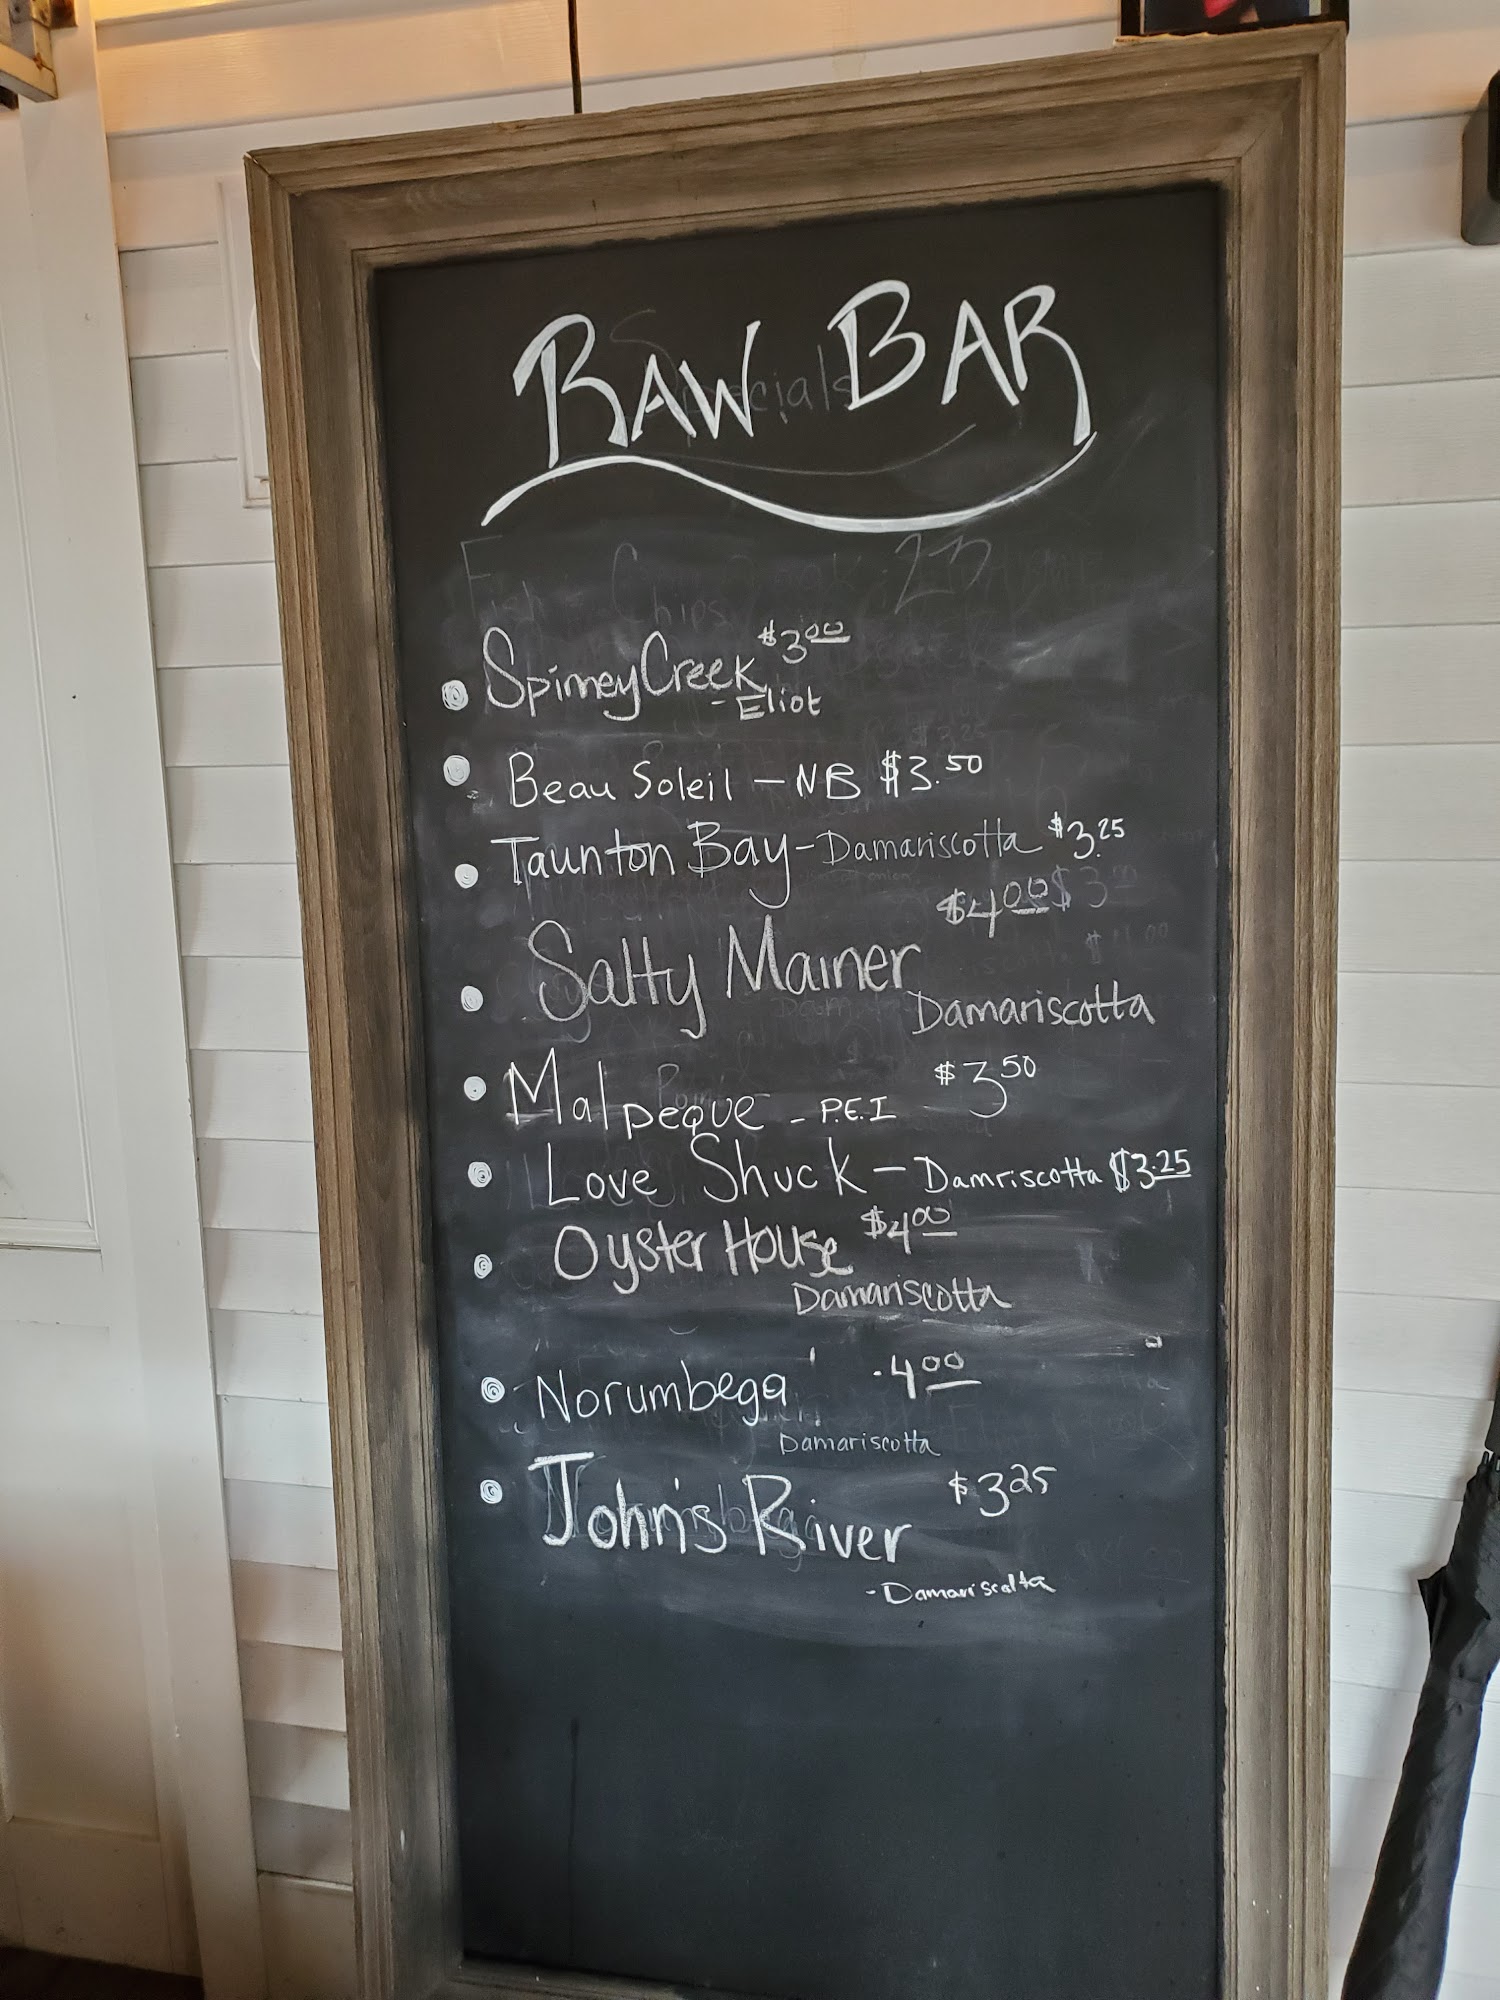 RAW BAR
Spinney Creek $3.00
- Eliot
Beau Soleil - NB $3.50
Taunton Bay - Damariscotta $3.25
$4.00
Salty Mainer
Damariscotta
Malpeque - P.E.I $3.50
Love Shuck - Damriscotta $3.25
Oyster House $4.00
Damariscotta
Norumbega .4.00
Damariscotta
John's River $3.25
- Damariscotta